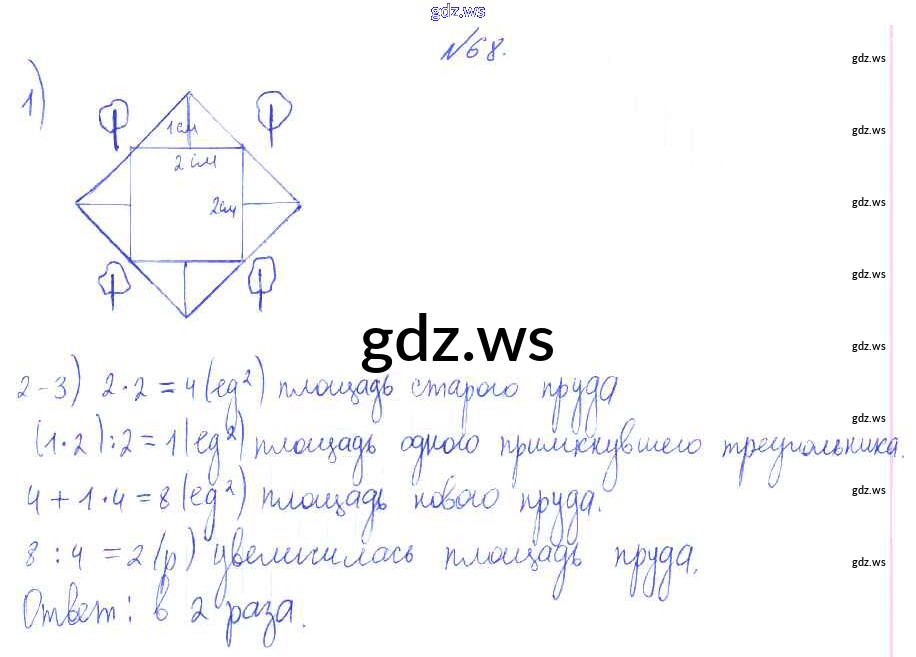 gdz.ws
№68.
gdz.ws
1)
gdz.ws
1 см
2 см
gdz.ws
2см
gdz.ws
gdz.ws
gdz.ws
2-3) 2·2=4(ед²) площадь старого пруда
gdz.ws
(1·2):2=1(ед²) площадь одного примкнувшего треугольника.
4+1·4=8(ед²) площадь нового пруда.
gdz.ws
8:4=2(р) увеличилась площадь пруда.
gdz.ws
Ответ: в 2 раза.